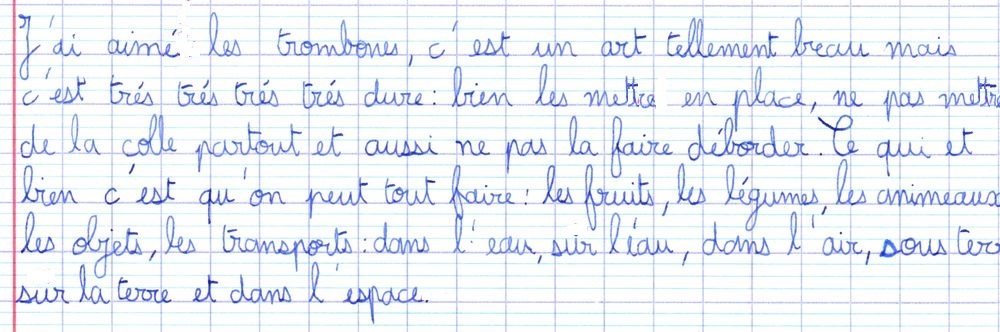 J'ai aimé les trombones, c'est un art tellement beau mais
c'est trés trés trés trés dure : bien les mettre en place, ne pas mettre
de la colle partout et aussi ne pas la faire déborder. Ce qui et
bien c'est qu'on peut tout faire : les fruits, les légumes, les animeaux
les objets, les transports : dans l'eau, sur l'éau, dans l'air, sous terr
sur la terre et dans l'espace.